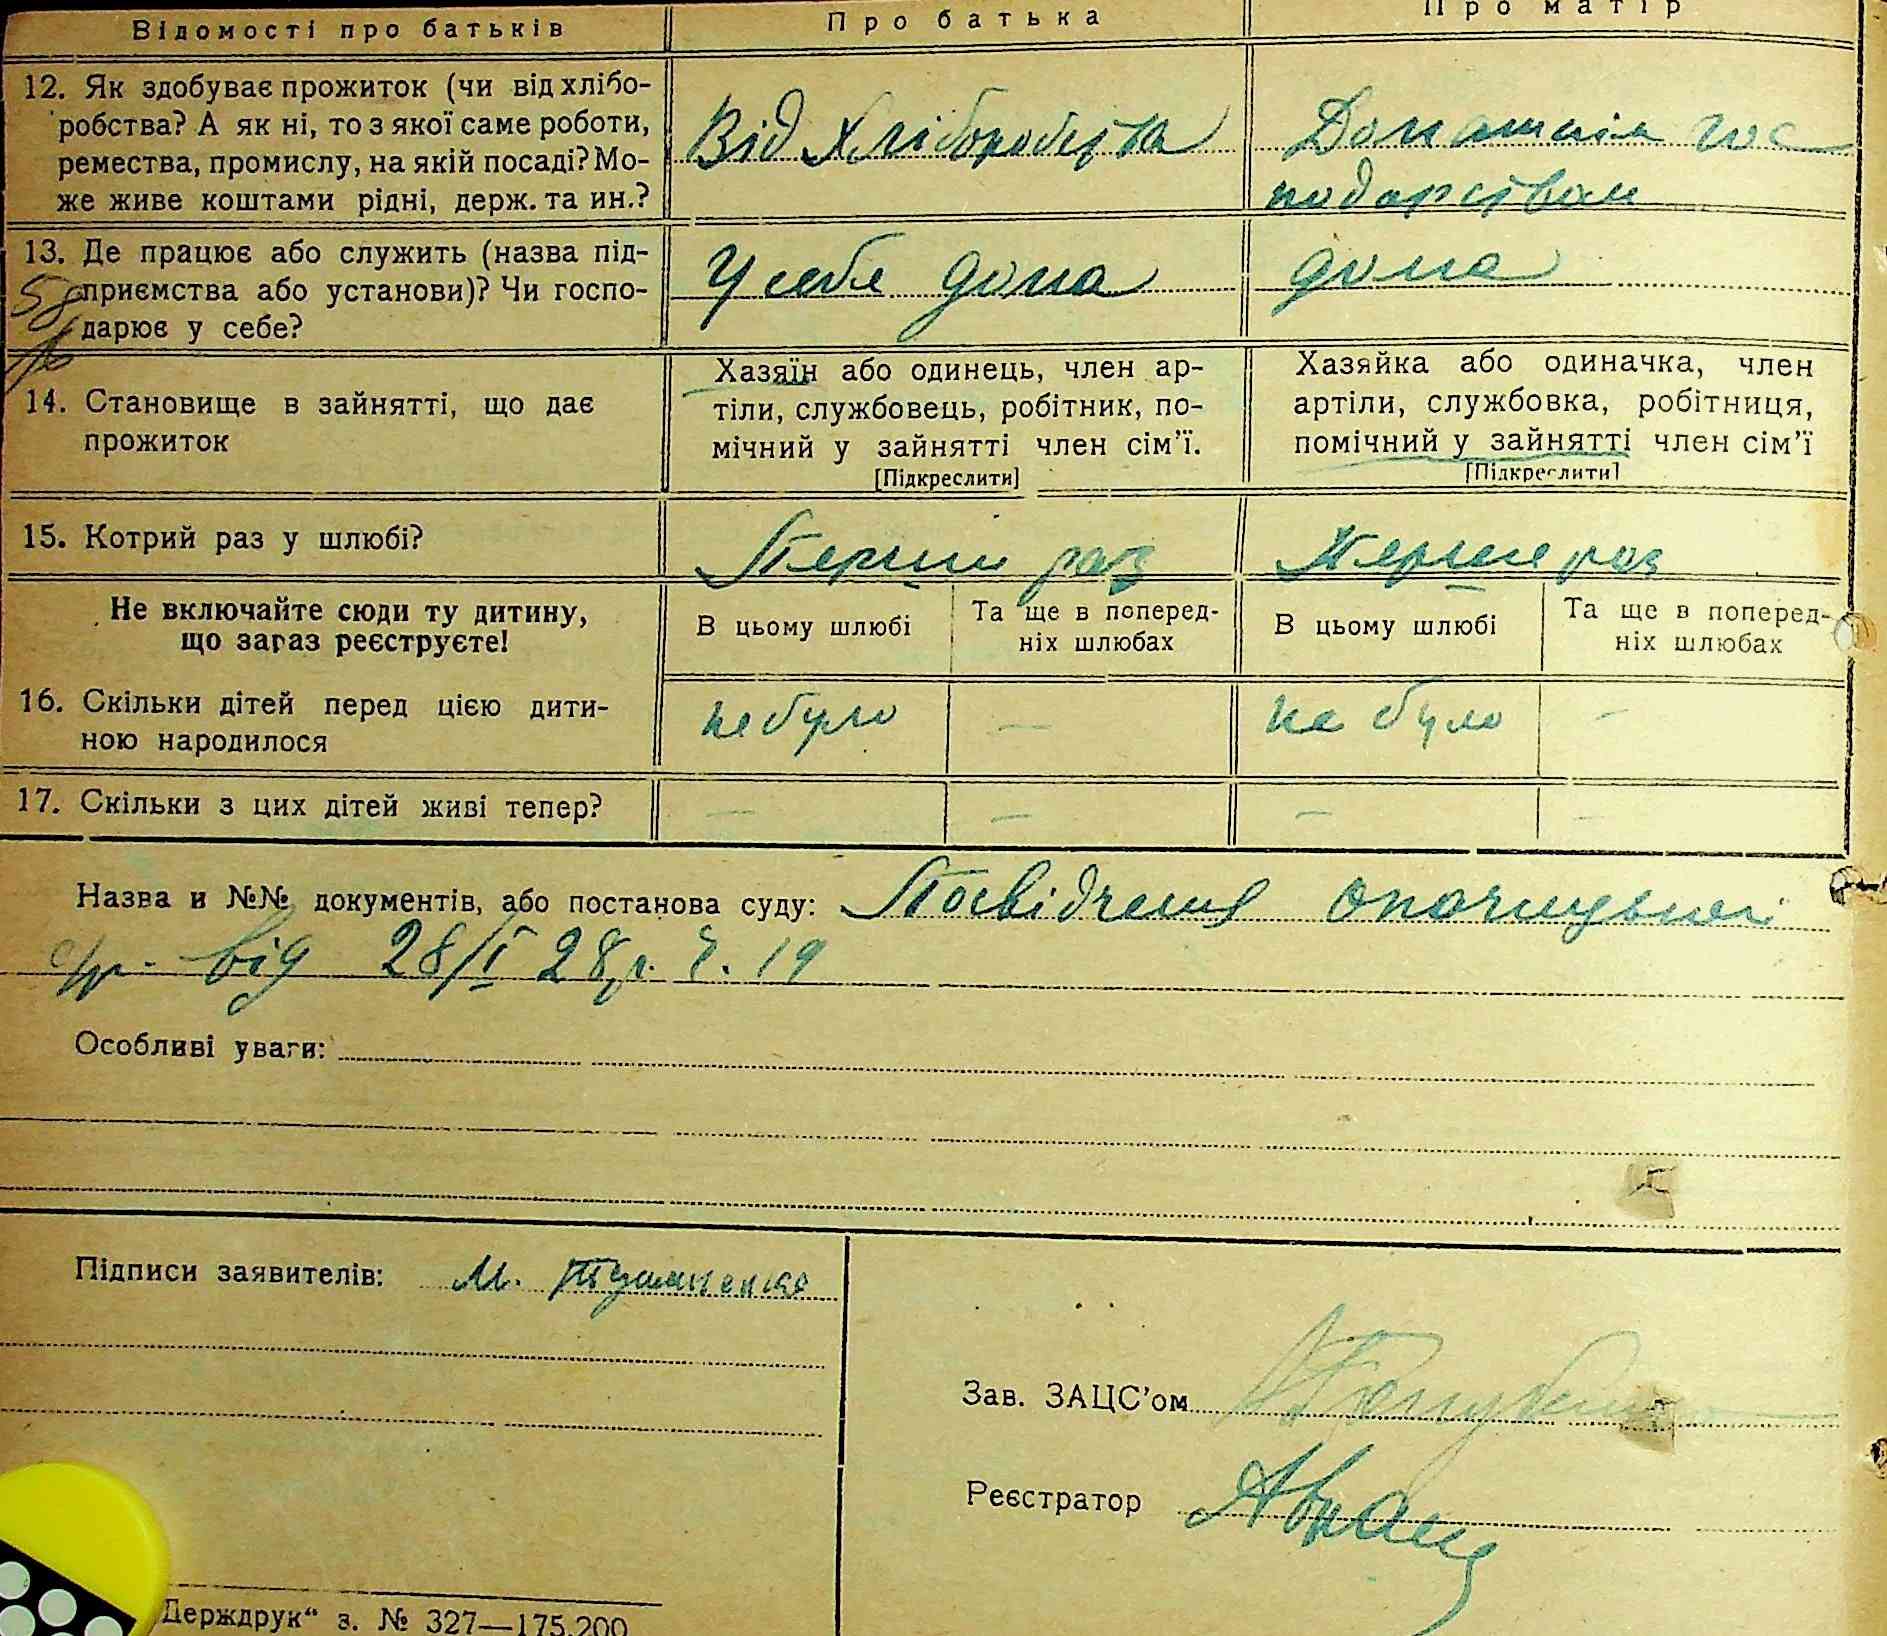 Відомості про батьків
Про батька
Про матір
12. Як здобуває прожиток (чи від хлібо-
робства? А як ні, то з якої саме роботи,
ремества, промислу, на якій посаді? Мо-
же живе коштами рідні, держ. та ин.?
Від хліборобства
Домашнім гос
подарством
13. Де працює або служить (назва під-
приємства або установи)? Чи госпо-
дарює у себе?
У себе дома
дома
14. Становище в зайнятті, що дає
прожиток
Хазяїн або одинець, член ар-
тіли, службовець, робітник, по-
мічний у зайнятті член сім’ї.
[Підкреслити]
Хазяйка або одиначка, член
артіли, службовка, робітниця,
помічний у зайнятті член сім’ї
[Підкреслити]
15. Котрий раз у шлюбі?
Перший раз
Перше раз
Не включайте сюди ту дитину,
що зараз реєструєте!
В цьому шлюбі
Та ще в поперед-
ніх шлюбах
В цьому шлюбі
Та ще в поперед-
ніх шлюбах
16. Скільки дітей перед цією дити-
ною народилося
не було
—
не було
—
17. Скільки з цих дітей живі тепер?
— — — —
Назва и №№ документів, або постанова суду: Посвідчення
с/р. від 28/I 28р. Ч. 19
Особливі уваги:
Підписи заявителів: М. Тушненко
Зав. ЗАЦС’ом
Реєстратор
Держдрук“ з. № 327—175.200